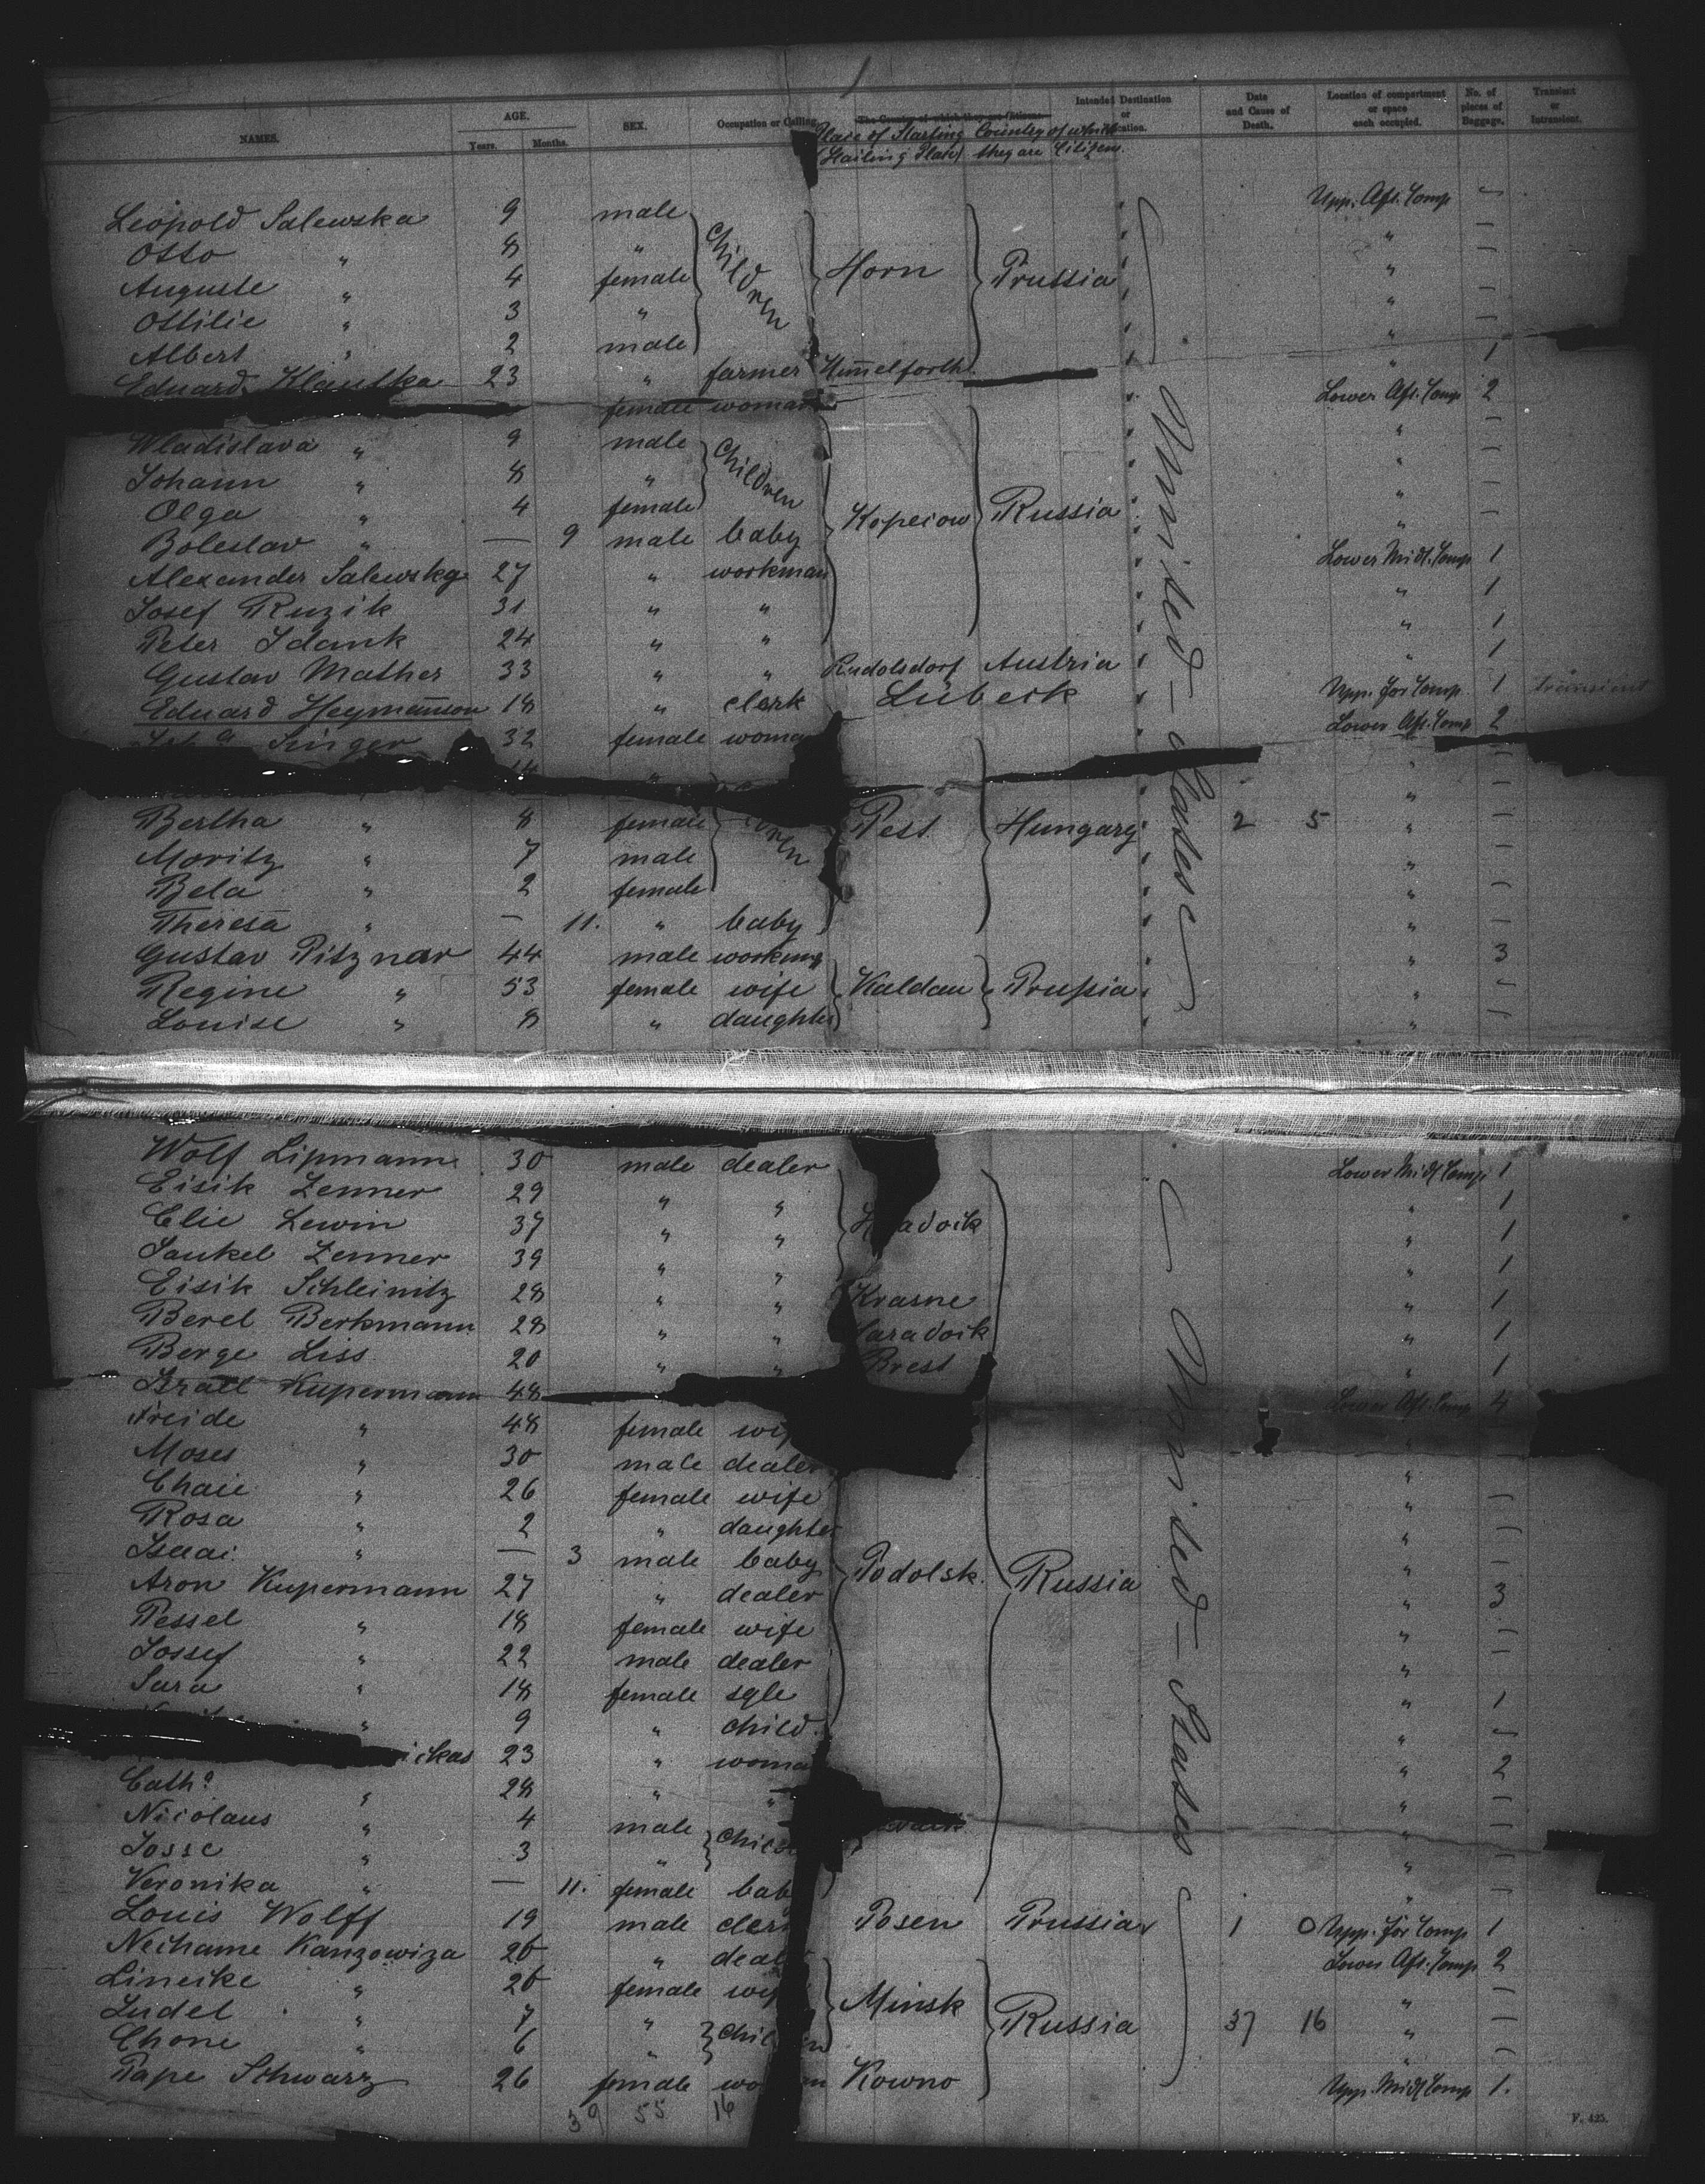 NAMES. AGE. Years. Months. SEX. Occupation or Calling. The Country of which they are citizens. Intended Destination or Location. Date and Cause of Death. Location of compartment or space each occupied. No. of pieces of Baggage. Transient or Intransient.
Place of Starting Country of which
(Hailing Place) they are Citizens.
Leopold Salewska 9 male Children Horn Prussia United-States Upp. Aft. Comp —
Otto " 8 " " —
Auguste " 4 female " —
Ottilie " 3 " " —
Albert " 2 male " —
Eduard Klautka 23 " farmer Himelforth " 1
female woman Lower Aft. Comp 2
Wladislava " 9 male Children Kopeiow Russia " —
Johann " 8 " " —
Olga " 4 female " —
Boleslav " — 9 male baby " —
Alexander Salewsky 27 " workman Lower Midl. Comp 1
Josef Ruzik 31 " " " 1
Peter Idank 24 " " " 1
Gustav Mather 33 " " Rudolsdorf Austria " 1
Eduard Heymannson 18 " clerk Lübeck Upp. For Comp. 1 transient
Singer 32 female woman Lower Aft. Comp 2
Bertha " 8 female Pest Hungary 2 5 " —
Moritz " 7 male " —
Bela " 2 female " —
Theresa " — 11. " baby " —
Gustav Pitznar 44 male workman Kaldau Prussia " 3
Regine " 53 female wife " —
Louise " 8 " daughter " —
Wolf Lipmann 30 male dealer Lower Midl Comp 1
Eisik Zenner 29 " " " 1
Elie Lewin 37 " " " 1
Jankel Zenner 39 " " " 1
Eisik Schleinitz 28 " " Krasne " 1
Berel Berkmann 28 " " " 1
Berge Liss 20 " " Brest " 1
Israel Kupermann 48 Lower Aft. Comp 4
Freide " 48 female
Moses " 30 male dealer " —
Chaie " 26 female wife " —
Rosa " 2 " daughter " —
Isaai " — 3 male baby Podolsk Russia United-States " —
Aron Kupermann 27 " dealer " 3
Pessel " 18 female wife " —
Jossef " 22 male dealer " —
Sara " 18 female sgle " 1
" 9 " child " —
23 " woman " 2
Cath.a " 28 " " " —
Nicolaus " 4 male " —
Josse " 3 " " —
Veronika " — 11. female baby " —
Louis Wolff 19 male clerk Posen Prussia 1 0 Upp. For Comp 1
Nechame Kanzowiza 26 " dealer Lower Aft. Comp 2
Lineike " 26 female wife Minsk Russia " —
Judel " 7 " children 37 16 " —
Chone " 6 " " —
Pape Schwarz 26 female woman Kowno Upp. Midl Comp 1.
39 55 16
F. 425.